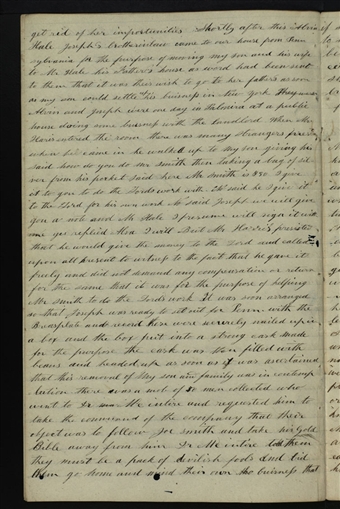 get rid of her importunities Shortly after this Alvia
Hale Joseph's brotherinlaw came to our house from Pen
sylvania for the purpose of moving my son and his wife
to Mr Hale his Father's house as word had been sent
to them that it was their wish to go to her fathers as soon
as my son could settle his buisness in New york
Alvin and Joseph were one day in Palmira at a public
house doing some buisness with the landlord When Mr
Haris entered the room there was many strangers
when he came in he walked up to my son giving his
said how do you do Mr Smith then taking a bag of sil
ver from his pocket said here Mr Smith is $50 I give
it to you to do the Lords work with No said he I give it
to the Lord for his own work No said Joseph we will give
you a note and Mr Hale I presume will sign it with
me yes replied Alva I will But Mr Harris
that he would give the money to the Lord and called
upon all present to witness to the fact that he gave it
freely and did not demand any compensation or return
for the same that it was for the purpose of helping
Mr Smith to do the Lord's work It was soon arranged
so that Joseph was ready to set out for Penn with the
Brasplate and record these were severely nailed up in
a box and the box put into a strong cask made
for the purpose the cask was then filled with
beans and headed up as soon as it was ascertained
that this removal of my son and family was in contemp
lation there was a mob of 50 men collected who
went to Dr Mc Intire and requested him to
take the command of the company that their
object was to follow Joe smith and take his Gold
Bible away from him Dr Mc intire told them
they must be a pack of devilish fools and bid
them go home and mind their own buisness that